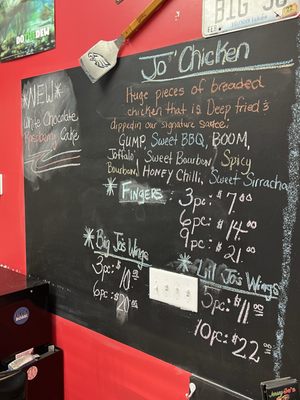 BIG JO
Illinois
Jo' Chicken
Huge pieces of breaded
chicken that is Deep fried &
dipped in our signature sauce:
GUMP, Sweet BBQ, BOOM,
Joffalo, Sweet Bourbon, Spicy
Bourbon, Honey Chili, Sweet Sirracha
*NEW*
White Chocolate
Raspberry Cake
* FINGERS *
3pc: $7.00
6pc: $14.00
9pc: $21.00
*Big Jo's Wings
3pc: $10.00
6pc: $20.00
*Lil' Jo's Wings
5pc: $11.00
10pc: $22.00